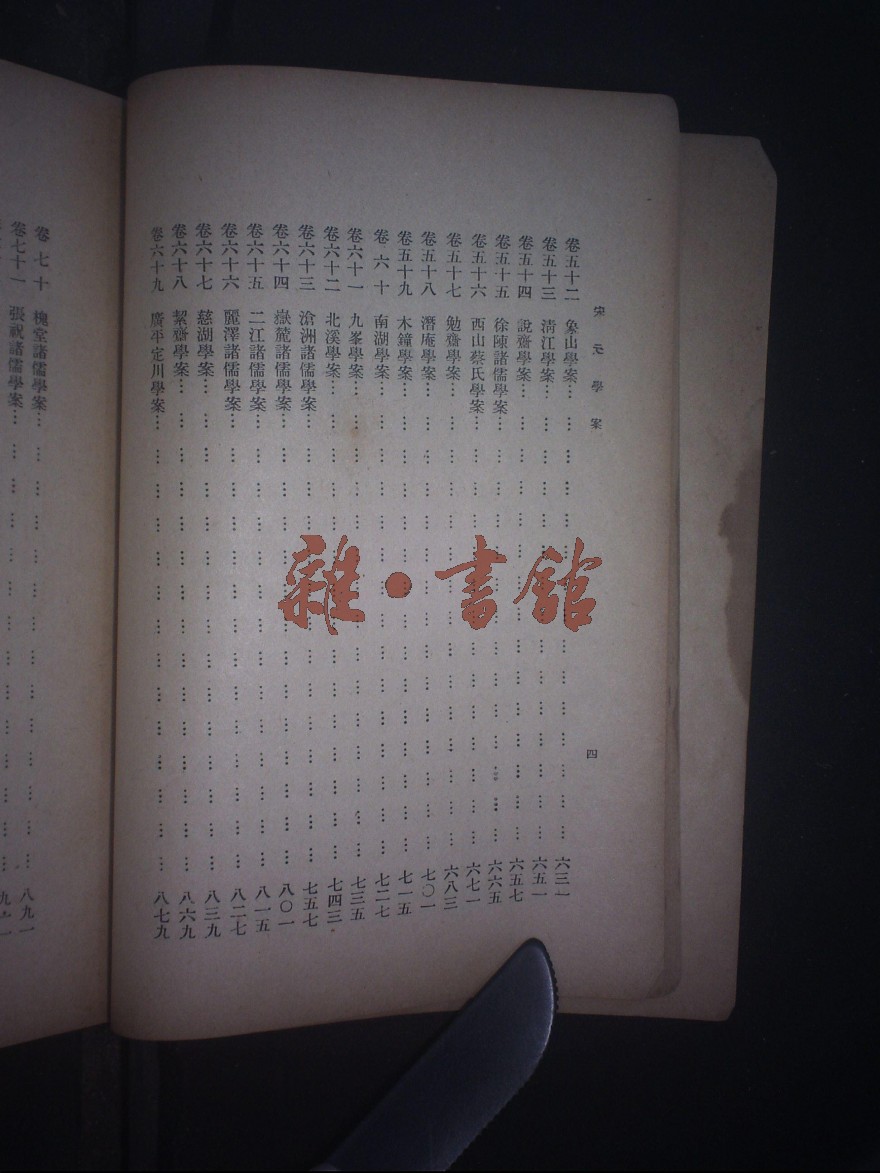 宋元學案
四
卷五十二 象山學案……六三一
卷五十三 清江學案……六五一
卷五十四 說齋學案……六五七
卷五十五 徐陳諸儒學案……六六五
卷五十六 西山蔡氏學案……六七一
卷五十七 勉齋學案……六八三
卷五十八 潛庵學案……七〇一
卷五十九 木鐘學案……七一五
卷六十 南湖學案……七二七
卷六十一 九峯學案……七三五
卷六十二 北溪學案……七四三
卷六十三 滄洲諸儒學案……七五七
卷六十四 嶽麓諸儒學案……八〇一
卷六十五 二江諸儒學案……八一五
卷六十六 麗澤諸儒學案……八二七
卷六十七 慈湖學案……八三九
卷六十八 絜齋學案……八六九
卷六十九 廣平定川學案……八七九
卷七十 槐堂諸儒學案……八九一
卷七十一 張祝諸儒學案……九
雜·書館